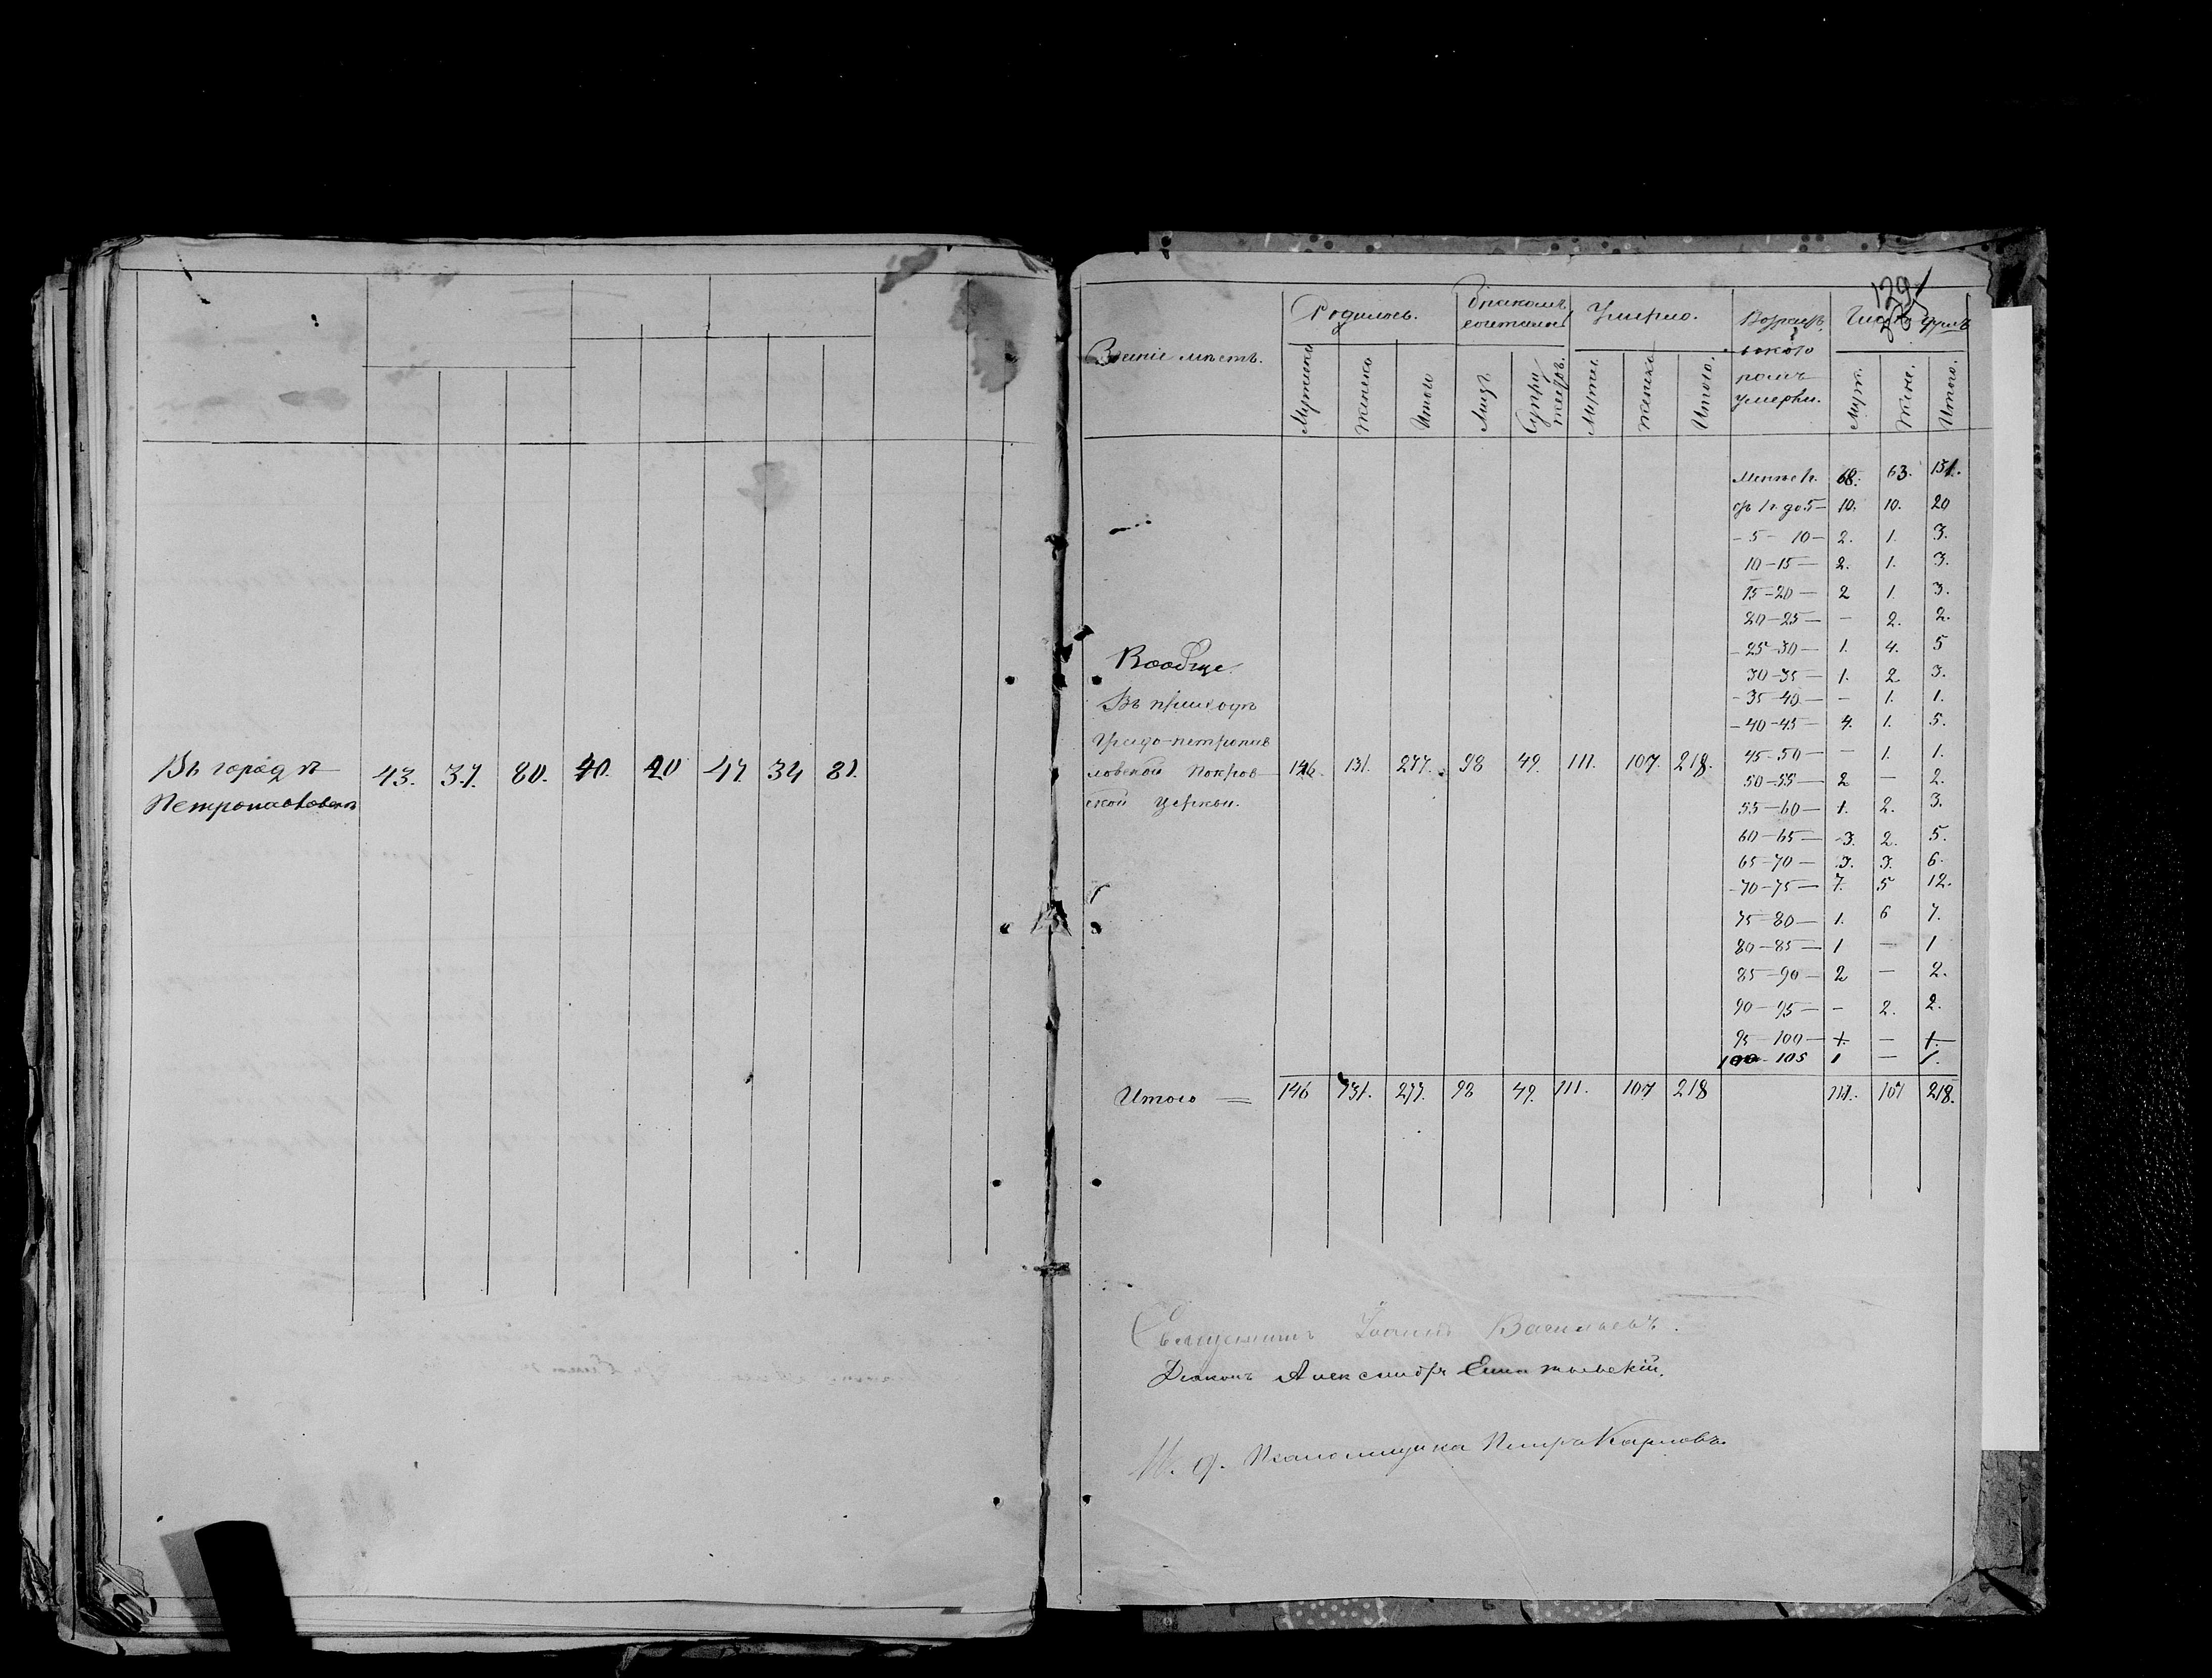 Въ городѣ 43. 37. 80. 40. 20 47 34 81.
Петропавловскѣ
129
Званіе мѣстъ. Родилось. Бракомъ Умерло. Возрастъ, Число душъ
сочетались
въ кото
ромъ
умерли.
Мужеска Женска Итого Лицъ Супру Мужес. Женска Итого. Муж. Жене. Итого.
жествъ.
Менѣе 1 г. 68. 63. 131.
отъ 1 г. до 5 — 10. 10. 20
- 5 - 10 - 2. 1. 3.
10 - 15 — 2. 1. 3.
15 - 20 — 2 1. 3.
20 - 25 — - 2. 2.
- 25 - 30 — 1. 4. 5
30 - 35 — 1. 2 3.
- 35 - 40 — - 1. 1.
- 40 - 45 — 4. 1. 5.
45 - 50 — - 1. 1.
50 - 55 — 2 — 2.
55 — 60 — 1. 2. 3.
60 - 65 — 3. 2. 5.
65 - 70 — 3. 3. 6.
- 70 - 75 — 7. 5 12.
75 - 80 — 1. 6 7.
80 - 85 — 1 — 1
85 - 90 — 2 — 2.
90 - 95 — - 2. 2.
95 - 100 — 1. — 1.
100 - 105 1 — 1.
Вообще
Въ приходѣ
Градо-петропав
ловской Покров 146. 131. 277. 98 49. 111. 107. 218.
ской церкви.
Итого = 146 131. 277. 98 49. 111. 107 218 111. 107 218.
Священникъ Іоаннъ Васильевъ.
Діаконъ Александръ
И. д. Псаломщика Петръ Карповъ.